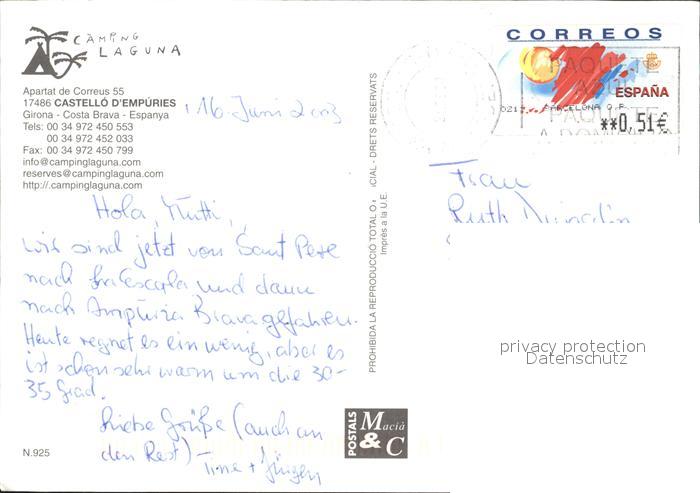 CAMPING
LAGUNA
Apartat de Correus 55
17486 CASTELLÓ D'EMPÚRIES
Girona - Costa Brava - Espanya
Tels: 00 34 972 450 553
00 34 972 452 033
Fax: 00 34 972 450 799
info@campinglaguna.com
reserves@campinglaguna.com
http://.campinglaguna.com
16. Juni 2003
Hola, Mutti,
wir sind jetzt von Sant Pere
nach La Escala und dann
nach Ampúria Brava gefahren.
Heute regnet es ein wenig, aber es
ist schon sehr warm um die 30-
35 Grad.
Liebe Grüße (auch an
den Rest) -
Tine + Jürgen
N.925
PROHIBIDA LA REPRODUCCIÓ TOTAL O CIAL - DRETS RESERVATS
Imprès a la U.E.
POSTALS
Macià
& C
CORREOS
ESPAÑA
BARCELONA O.P.
**0,51€
PAQUETE
AZUL
PAQUETE
A DOMICILIO
Frau
Ruth
privacy protection
Datenschutz